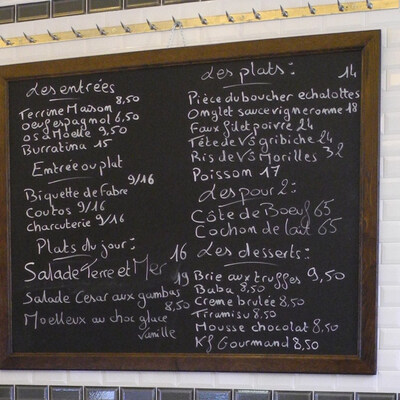 Les entrées
Terrine Maison 8,50
oeuf espagnol 6,50
os a Moelle 9,50
Burratina 15
Entrée ou plat
Biquette de Fabre 9/16
Coutos 9/16
charcuterie 9/16
Plats du jour:
Salade Terre et Mer 16
Salade Cesar aux gambas 19
Moelleux au choc glace vanille 8,50
Les plats: 14
Pièce du boucher echalottes
Onglet sauce vigneronne 18
Faux filet poivre 24
Tête de VS gribiche 24
Ris de VS Morilles 32
Poisson 17
Les pour 2:
Côte de Boeuf 65
Cochon de lait 65
Les desserts:
Brie aux truffes 9,50
Baba 8,50
Creme brulée 8,50
Tiramisu 8,50
Mousse chocolat 8,50
Kf Gourmand 8,50